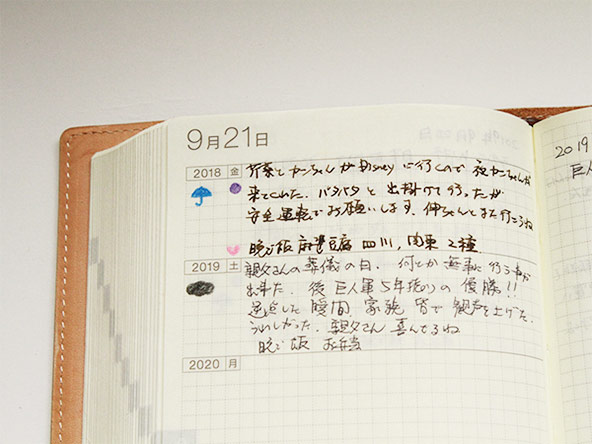 9月21日
2018 金 がDisneyに行くので 夜かーちゃんが
来てくれた。バタバタと出掛けて行ったが
安全運転でお願いします。伸ちゃんとまた行こうね
晩ご飯 麻婆豆腐 四川,関東 2種
2019 土 親父さんの葬儀の日。何とか無事に行う事が
出来た。後 巨人軍5年振りの優勝!!
した瞬間、家族皆で歓声を上げた。
うれしかった。親父さん喜んでるね
晩ご飯 お弁当
2020 月
2019
巨人